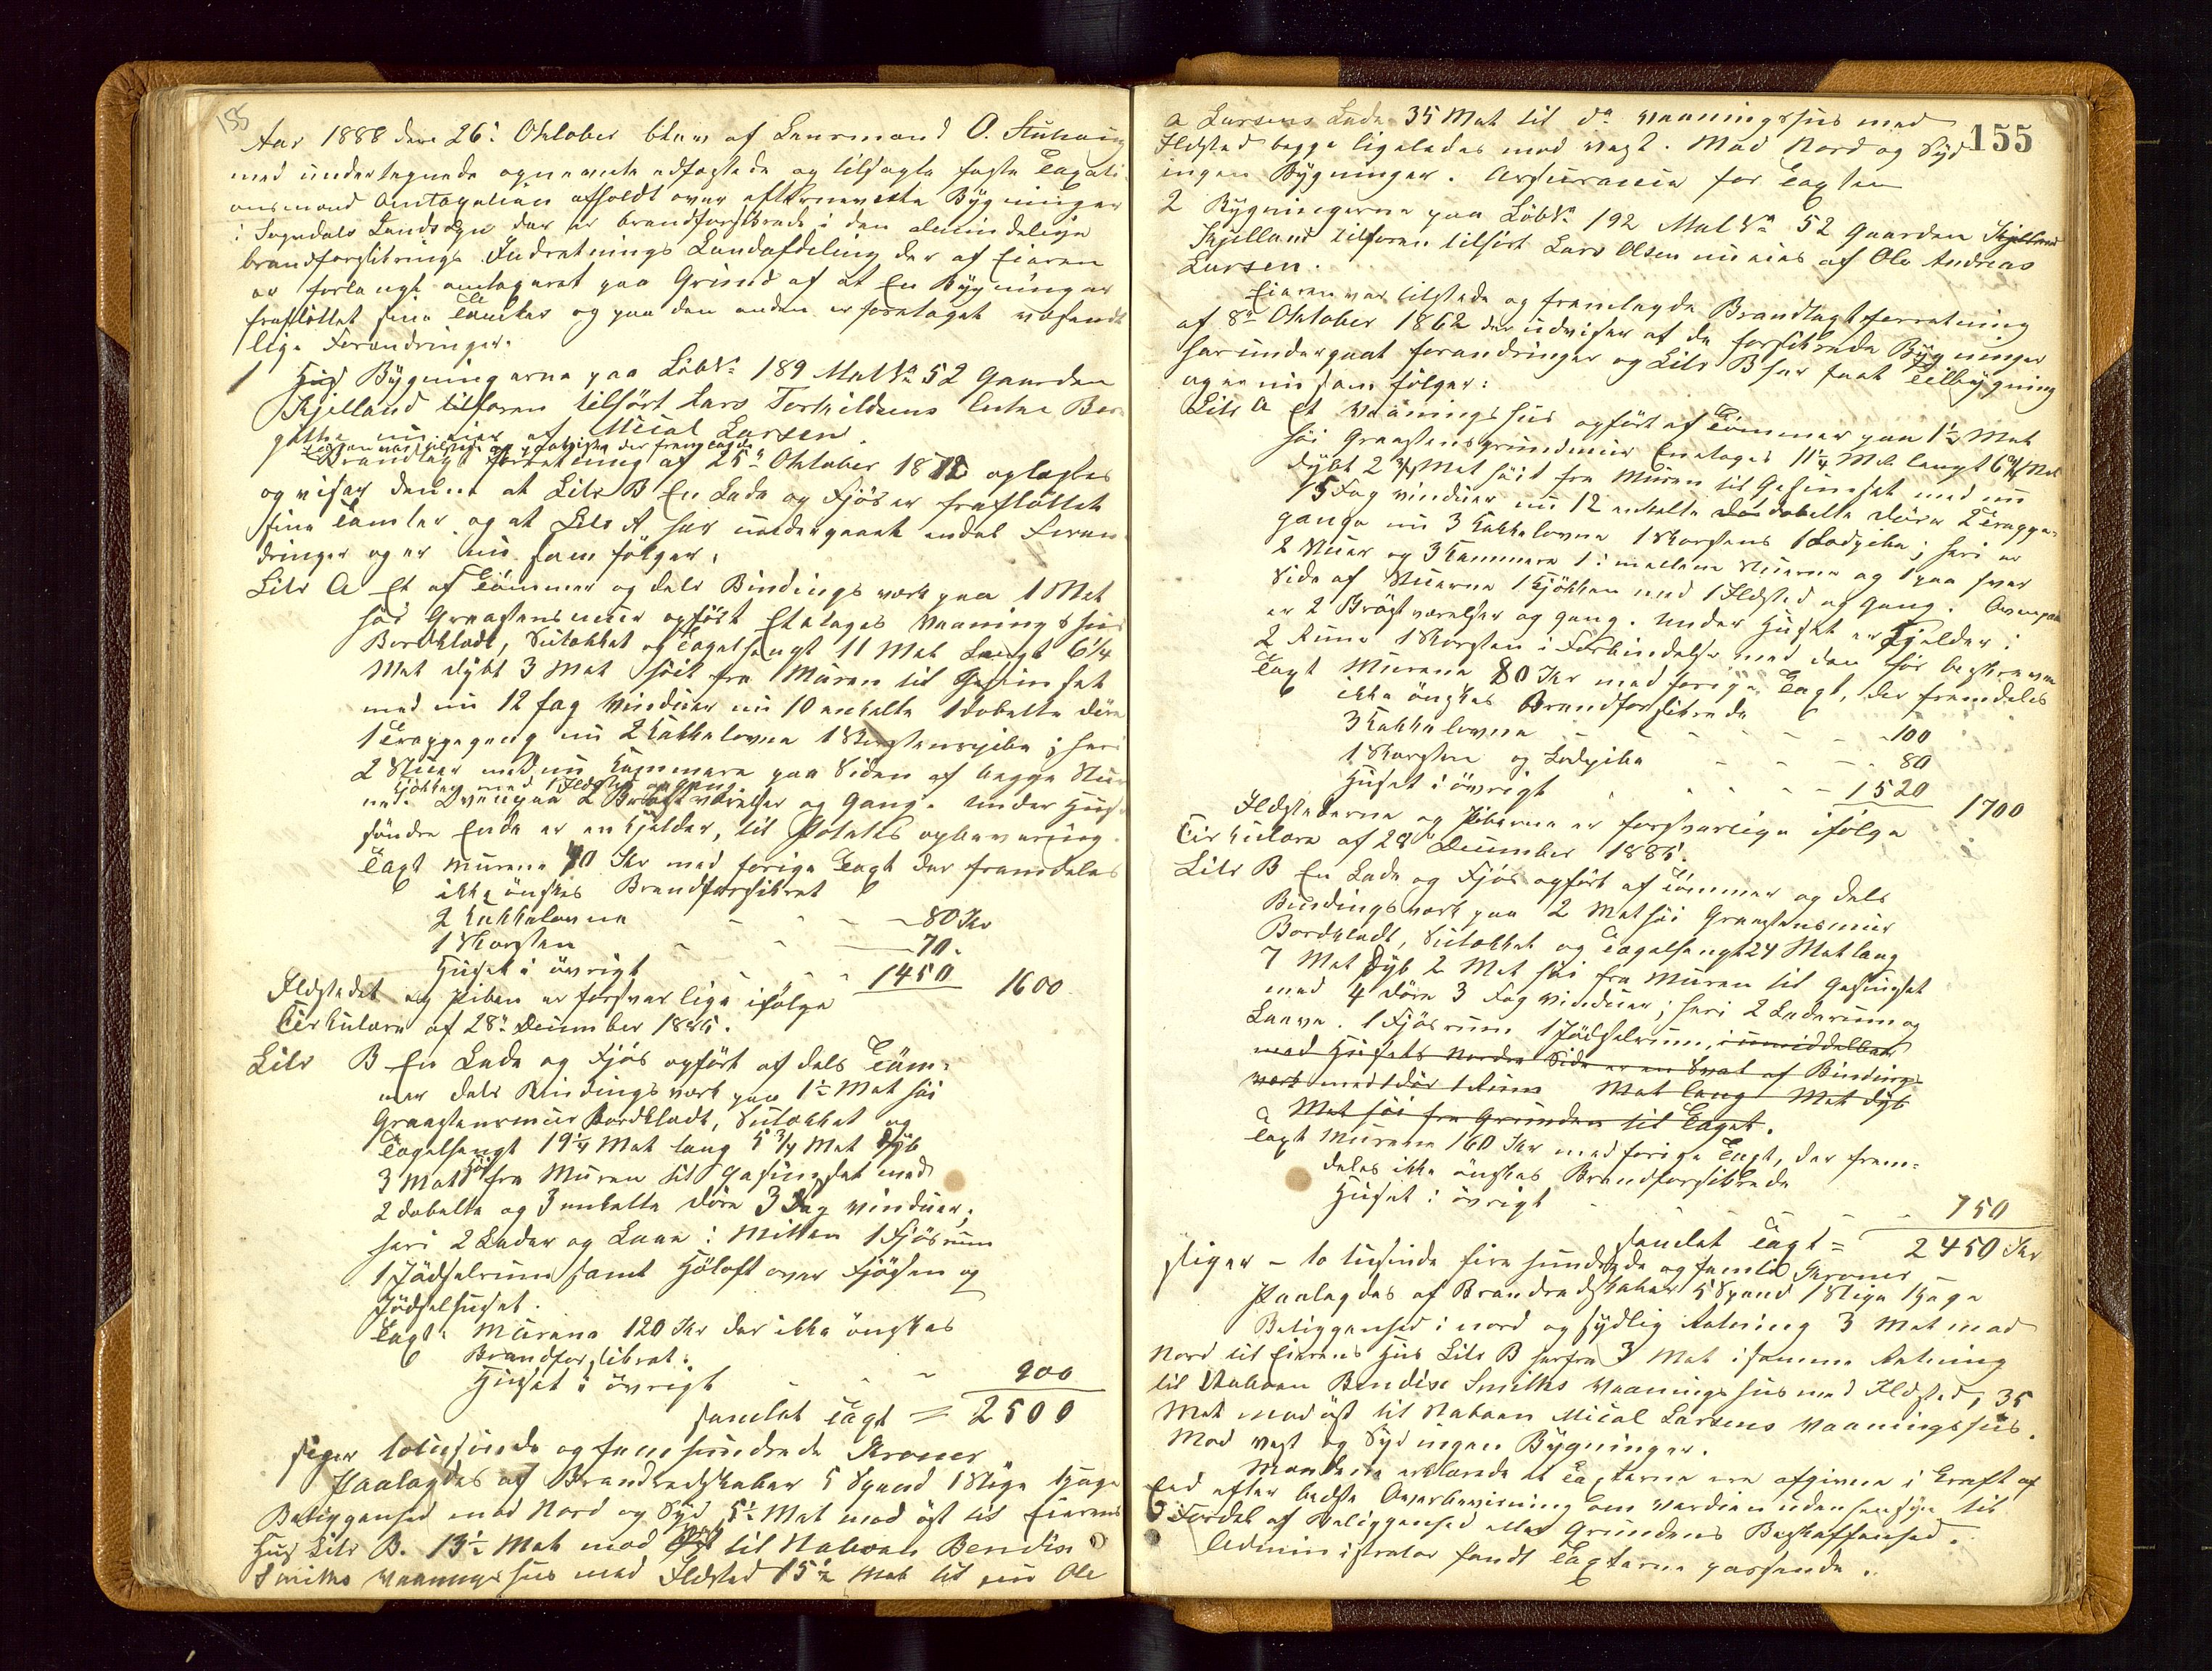 155
Aar 1888 den 26: Oktober blev af Lensmand O. Stuhaug
med undertegnede opnævnte edfæstede og tilsagte faste Taxati-
onsmænd Omtaxation afholdt over efternævnte Bygninger
i Sogndals Landsogn der er brandforsikrede i den almindelige
brandforsikrings Indretnings Landafdeling der af Eieren
er forlangt omtaxeret paa Grund af at En Bygning er
fraflöttet sine Tomter og paa den anden er foretaget væsendt-
lige Forandringer.
1 Bygningerne paa LöbNo 189 MatNo 52 Gaarden
Skjelland tilforn tilhört Lars Torkildsens Enke Ber-
githe nu eies af Mical Larsen.
Eieren var tilstede og paaviste der fremlagde
Brandtaxt forretning af 25de Oktober 18 oplæstes
og viser denne at Litr B En Lade og Fjös er fraflöttet
sine Tomter og at Litr A har undergaaet endel Foran-
dringer og er nu som fölger:
Litr A Et af Tömmer og dels Bindingsværk paa 1 Met
höi Graastensmuur opfört Etetages Vaaningshuus
Bordklædt, Sutækket og Tagelhængt 11 Met Langt 6 1/4
Met dybt 3 Met höit fra Muren til Gesimset
med nu 12 fag Vinduer nu 10 enkelte 1 dobelte Döre
1 Trappegang nu 2 Kakkelovne 1 Skorstenspibe; heri
2 Stuer med nu Kammere paa Siden af begge Stuer
Kjökken med 1 Ildsted og Gang.
ned. Ovenpaa 2 Brögstværelser og Gang. Under Husets
söndre Ende er en Kjelder, til Potetes opbevaring.
Taxt Murene 70 Kr med forige Taxt der fremdeles
ikke önskes Brandforsikret
2 Kakkelovne - - - 80 Kr
1 Skorsten - - 70.
Huset i övrigt - - - 1450 1600
Ildstedet og Piben er forsvarlige ifölge
Cirkulære af 28de December 1885.
Litr B En Lade og Fjös opfört af dels Töm-
mer dels Bindingsværk paa 1 1/2 Met höi
Graastensmuur Bordklædt, Sutækket og
Tagelhængt 19 1/4 Met lang 5 3/4 Met dyb
3 Met höi fra Muren til Gesimset med
2 dobelte og 3 enkelte Döre 3 Fag Vinduer;
heri 2 Lader og Laave i Mitten 1 Fjösrum
1 Jödselrum samt Höloft over Fjösen og
Jödselhuset.
Taxt: Murene 120 Kr der ikke önskes
Brandforsikret.
Huset i övrigt - - - 900
samlet Taxt = 2500
siger totusinde og femhundrede Kroner
Paalagdes af Brandredskaber 5 Spand 1 Stige 1 Hage
Beliggenhed mod Nord og Syd 5 1/2 Met mod öst til Eierens
Hus Litr B. 13 1/2 Met mod Vest til Naboen Bendix
Smiths Vaaningshus med Ildsted 15 1/2 Met til nu Ole
155
A Larsens Lade 35 Met til do Vaaningshus med
Ildsted begge ligeledes mod Vest. Mod Nord og Syd
ingen Bygninger. Assurancen for Taxten
2 Bygningerne paa LöbNo 192 MatNo 52 Gaarden
Skjelland tilforn tilhört Lars Olsen nu eies af Ole Andreas
Larsen.
Eieren var tilstede og fremlagde Brandtaxtforretning
af 8de Oktober 1862 der udviser at de forsikrede Bygninger
har undergaat forandringer og Litr B har faat Tilbygning
og er nu som fölger:
Litr A Et Vaaningshus opfört af Tömmer paa 1 1/2 Met
höi Graastensgrundmuur Enetages 11 1/4 Met langt 6 3/4 Met
dybt 2 3/4 Met höit fra Muren til Gesimset med nu
15 Fag Vinduer nu 12 enkelte dobelte Döre 2 Trappe-
gange nu 3 Kakkelovne 1 Skorstens 1 Lodpibe; heri er
2 Stuer og 3 Kammere 1 imellem Stuerne og 1 paa hver
Side af Stuerne 1 Kjökken med 1 Ildsted og Gang. Ovenpaa
er 2 Brögstværelser og Gang. Under Huset er Kjelder i
2 Rum 1 Skorsten i Forbindelse med den för beskrevne
Taxt Murene 80 Kr med forige Taxt, der fremdeles
ikke önskes Brandforsikrede
3 Kakkelovne - - - - 100
1 Skorsten og Lodpibe - - - 80
Huset i övrigt - - - 1520 1700
Ildstederne og Piberne er forsvarlige ifölge
Cirkulære af 28de December 1885.
Litr B En Lade og Fjös opfört af Tömmer og dels
Bindingsværk paa 2 Met höi Graastensmuur
Bordklædt, Sutækket og Tagelhængt 24 Met lang
7 Met dyb 2 Met höi fra Muren til Gesimset
med 4 Döre 3 Fag Vinduer; heri 2 Laderum og
Laave. 1 Fjösrum 1 Jödselrum, i umiddelbar
med Husets Nordre Side er en Sval af Bindings-
værk med 1 Dör 1 Rum Met lang Met dyb
Met höi fra Grunden til Taget.
Taxt Murene 160 Kr med forige Taxt, der frem-
deles ikke önskes Brandforsikrede
Huset i övrigt - - - 750
samlet Taxt = 2450 Kr
siger - to tusinde fire hundrede og femti Kroner
Paalagdes af Brandredskaber 5 Spand 1 Stige 1 Hage
Beliggenhed i nord og sydlig Retning 3 Met mod
Nord til Eierens Hus Litr B herfra 3 Met i samme Retning
til Naboen Bendix Smiths Vaaningshus med Ildsted, 35
Met mod öst til Naboen Mical Larsens Vaaningshus.
Mod vest og Syd ingen Bygninger.
Mændene erklærede at Taxterne ere afgivne i Kraft af
Eed efter bedste Overbevisning om Værdien uden hensyn til
Fordel af Beliggenhed eller Grundens Beskaffenhed.
Administrator fandt Taxterne passende.